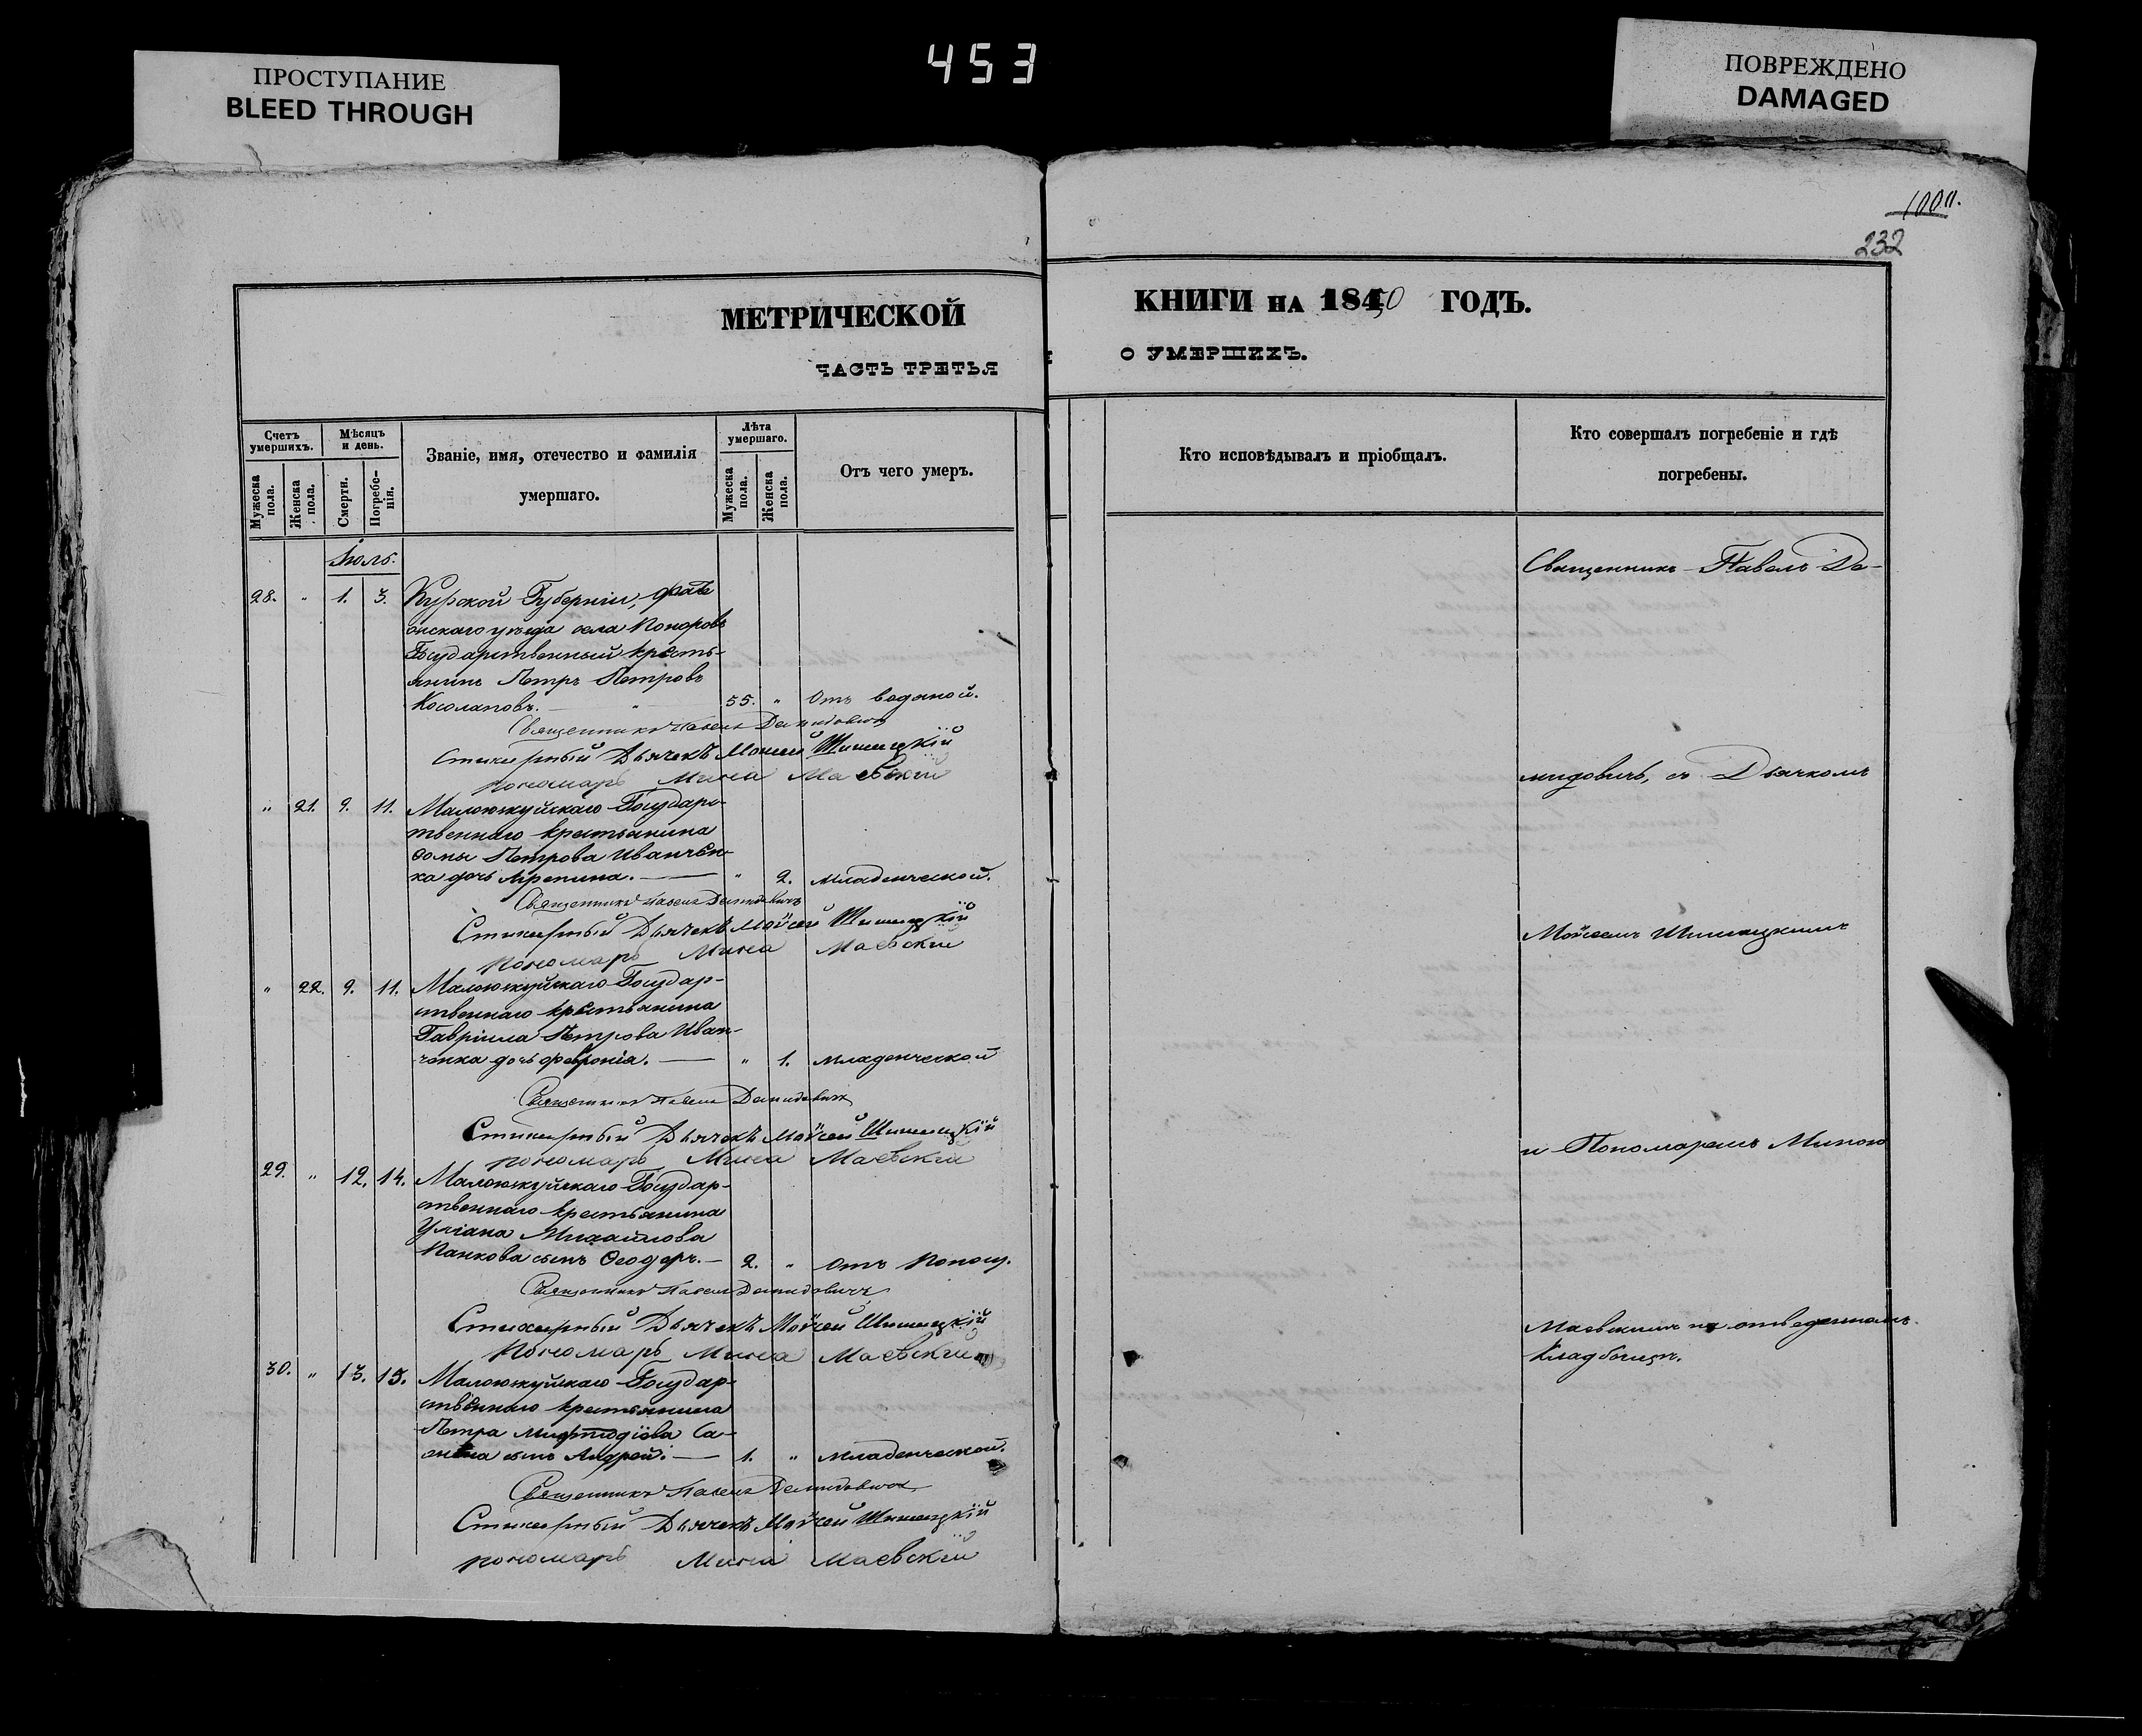 ПРОСТУПАНИЕ
BLEED THROUGH
453
ПОВРЕЖДЕНО
DAMAGED
1000.
232
МЕТРИЧЕСКОЙ
КНИГИ НА 1850 ГОДЪ.
ЧАСТЬ ТРЕТЬЯ
О УМЕРШИХЪ.
Счетъ умершихъ.
Мужеска пола.
Женска пола.
Мѣсяцъ и день.
Смерти.
Погребенія.
Званіе, имя, отечество и фамилія
умершаго.
Лѣта умершаго.
Мужеска пола.
Женска пола.
Отъ чего умеръ.
Кто исповѣдывалъ и пріобщалъ.
Кто совершалъ погребеніе и гдѣ
погребены.
Іюль.
28. " 1. 3. Курской Губерніи, Фате
жскаго уѣзда села
Государственный кресть-
янинъ Петръ Петровъ
Косолаповъ. 55. " Отъ водяной.
Священникъ Павелъ Демидовичъ
Стихарный Дьячекъ Моисей Шишацкій
пономарь Мина Маевскій
" 21. 9. 11. Государс-
твеннаго крестьянина
Ѳомы Петрова Иванчен-
ка дочь Ирина. " 2. Младенческой.
Священникъ Павелъ Демидовичъ
Стихарный Дьячекъ Моѵсей Шишацкій
пономарь Мина Маевскій
" 22. 9. 11. Государ-
ственнаго крестьянина
Гавріила Петрова Иван-
ченка дочь Февронія. " 1. младенческой
Священникъ Павелъ Демидовичъ
Стихарный Дьячекъ Моѵсей Шишацкій
пономарь Мина Маевскій
29. " 12. 14. Государ-
ственнаго крестьянина
Уліана Михайлова
Панкова сынъ Ѳеодоръ. 2. " Отъ поносу.
Священникъ Павелъ Демидовичъ
Стихарный Дьячекъ Моѵсей Шишацкій
пономарь Мина Маевскій
30. " 13. 15. Государ-
ственнаго крестьянина
Петра
сынъ Андрей. 1. " младенческой.
Священникъ Павелъ Демидовичъ
Стихарный Дьячекъ Моѵсей Шишацкій
пономарь Мина Маевскій
Священникъ Павелъ Де-
мидовичъ, съ Дьячкомъ
Моѵсеемъ Шишацкимъ
и Пономаремъ Миною
Маевскимъ на отведенномъ
Кладбищѣ.